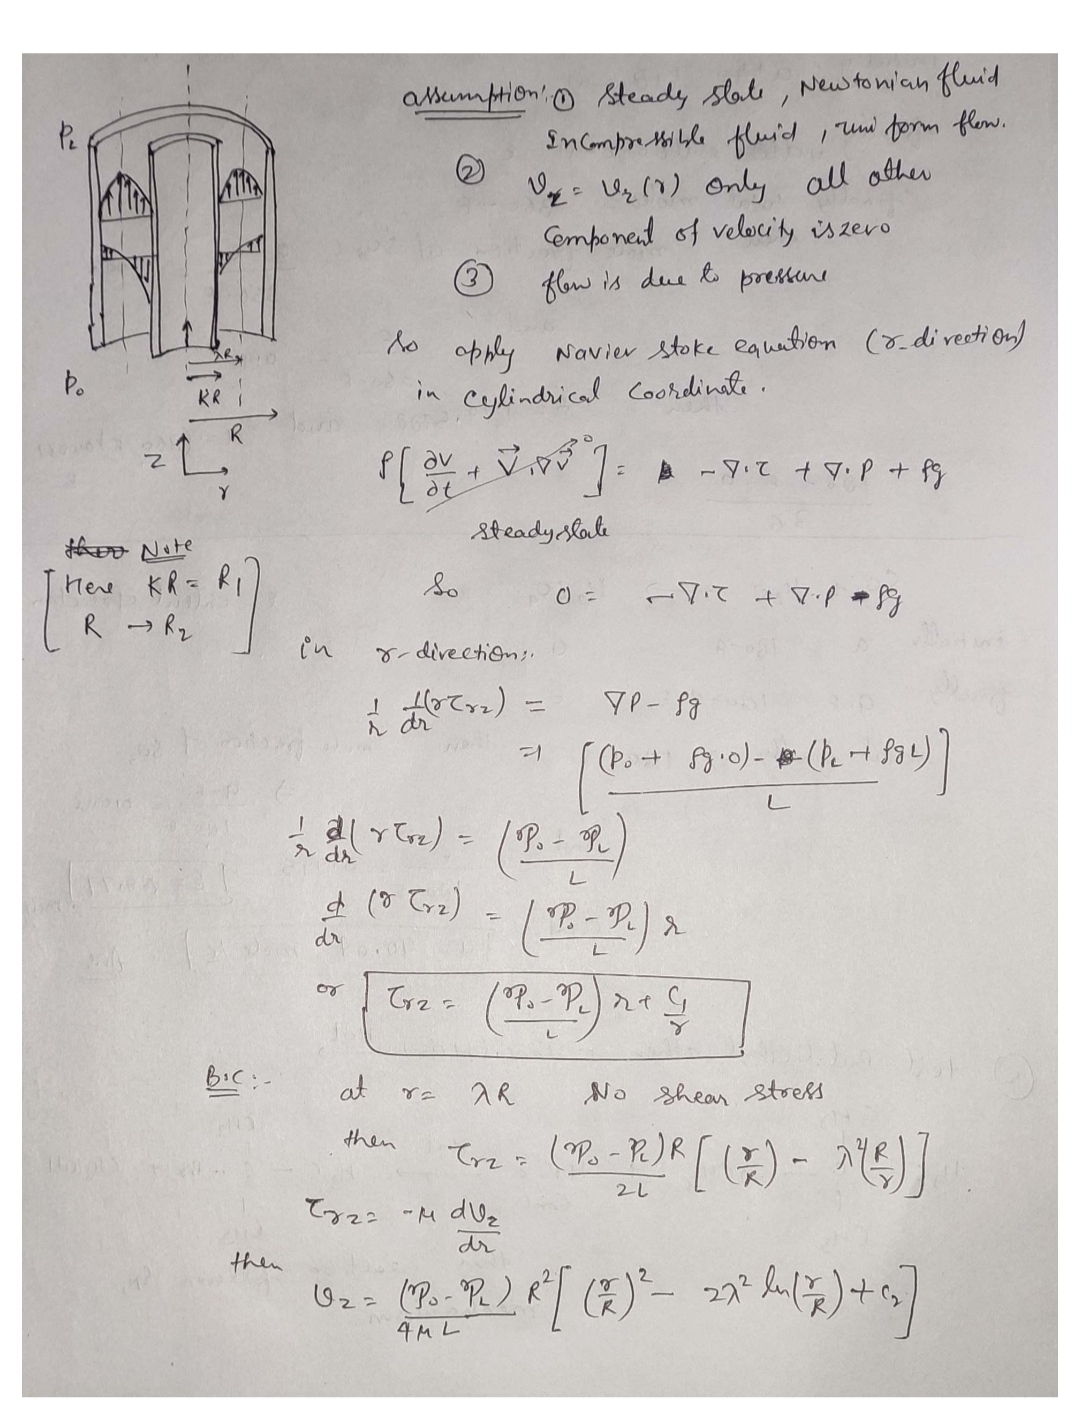 assumption: ① Steady state, Newtonian fluid
Incompressible fluid, uniform flow.
② v_z = v_z(r) only all other
Component of velocity is zero
③ flow is due to pressure
P_L
P_0
λR
KR
R
z
r
So apply Navier stoke equation (r-direction)
in cylindrical coordinate.
ρ[∂v/∂t + V⃗.∇V⃗ ⁰] = - ∇.τ + ∇.P + ρg
steady state
Note
[Here KR = R₁
R → R₂]
So 0 = -∇.τ + ∇.P + ρg
in r-direction:.
1/r d/dr (rτ_rz) = ∇P - ρg
⇒ [(P_0 + ρg.0) - (P_L + ρgL)]/L
1/r d/dr (rτ_rz) = (𝒫_0 - 𝒫_L / L)
d/dr (r τ_rz) = (𝒫_0 - 𝒫_L / L) r
or τ_rz = (𝒫_0 - 𝒫_L / L) r + C_1/r
B.C :- at r = λR No shear stress
then τ_rz = (𝒫_0 - P_L)R/2L [(r/R) - λ²(R/r)]
τ_rz = -μ dv_z/dr
then
v_z = (𝒫_0 - 𝒫_L)/4μL R² [(r/R)² - 2λ² ln(r/R) + c_2]